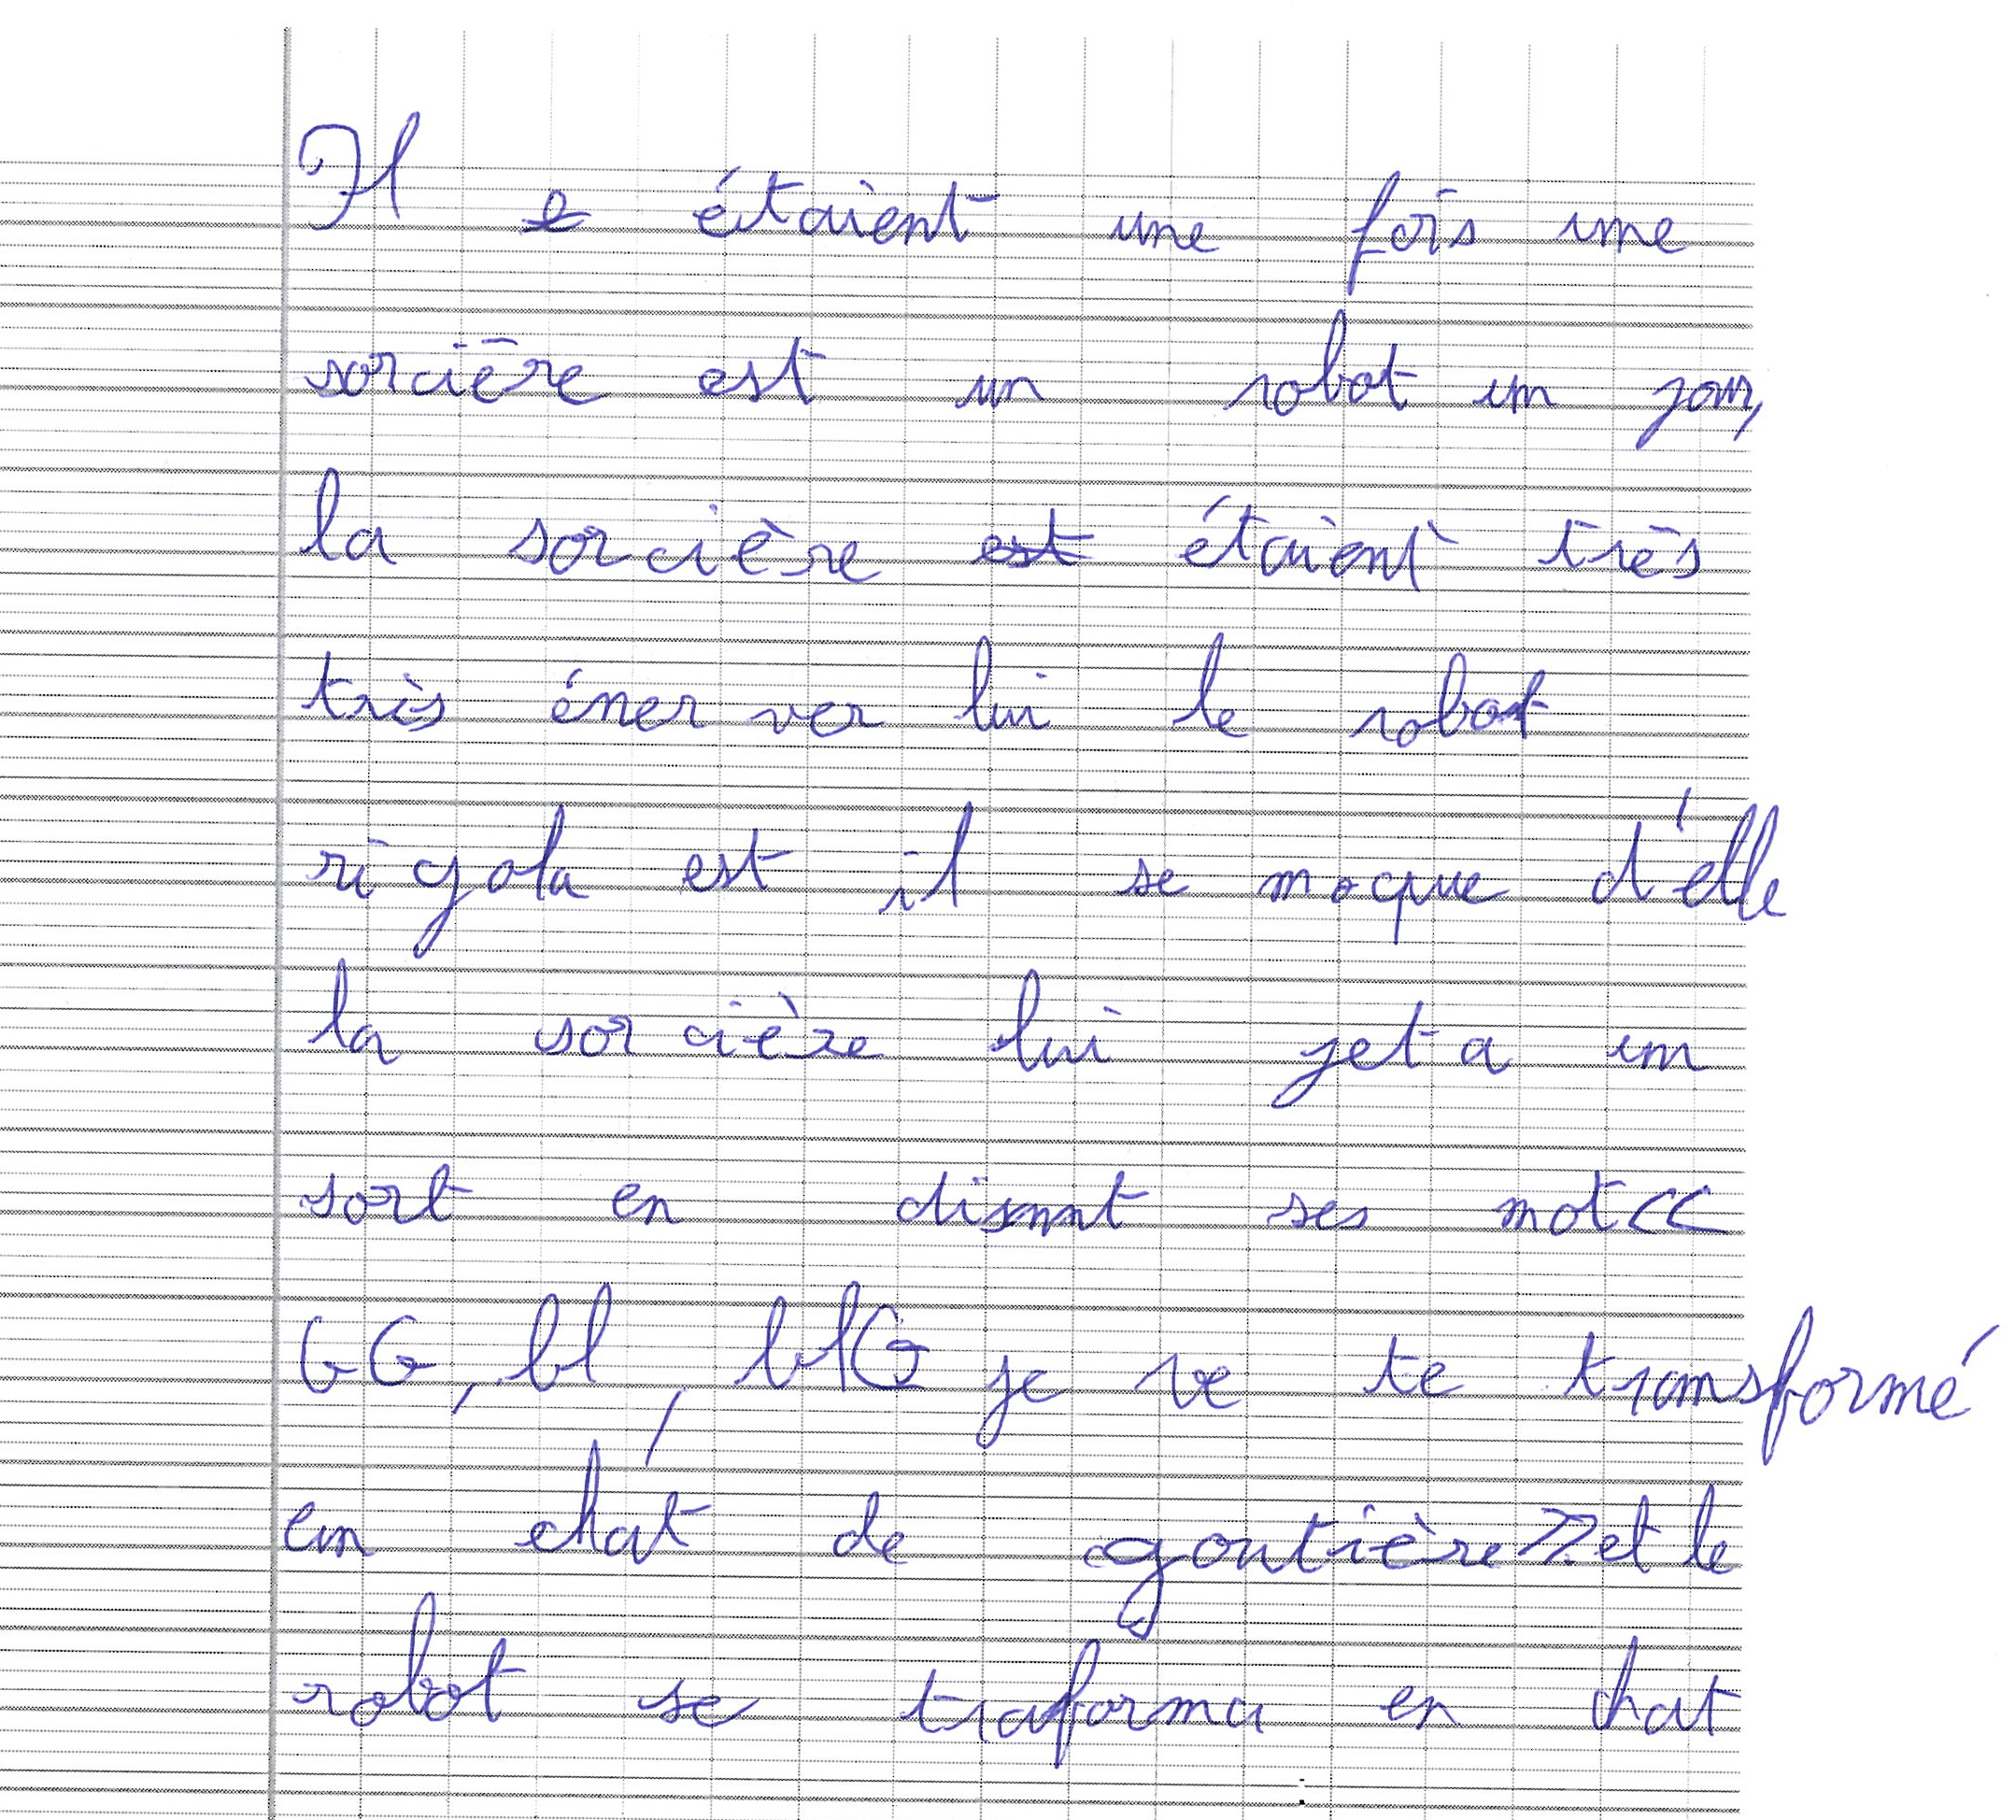 Il e étaient une fois une
sorcière est un robot un jour,
la sorcière est étaient très
très énerver lui le robot
rigola est il se moque d'elle
la sorcière lui jeta un
sort en disant ses mot <<
GG, bl, blG je ve te transformé
en chat de goutière >> et le
robot se traforma en chat